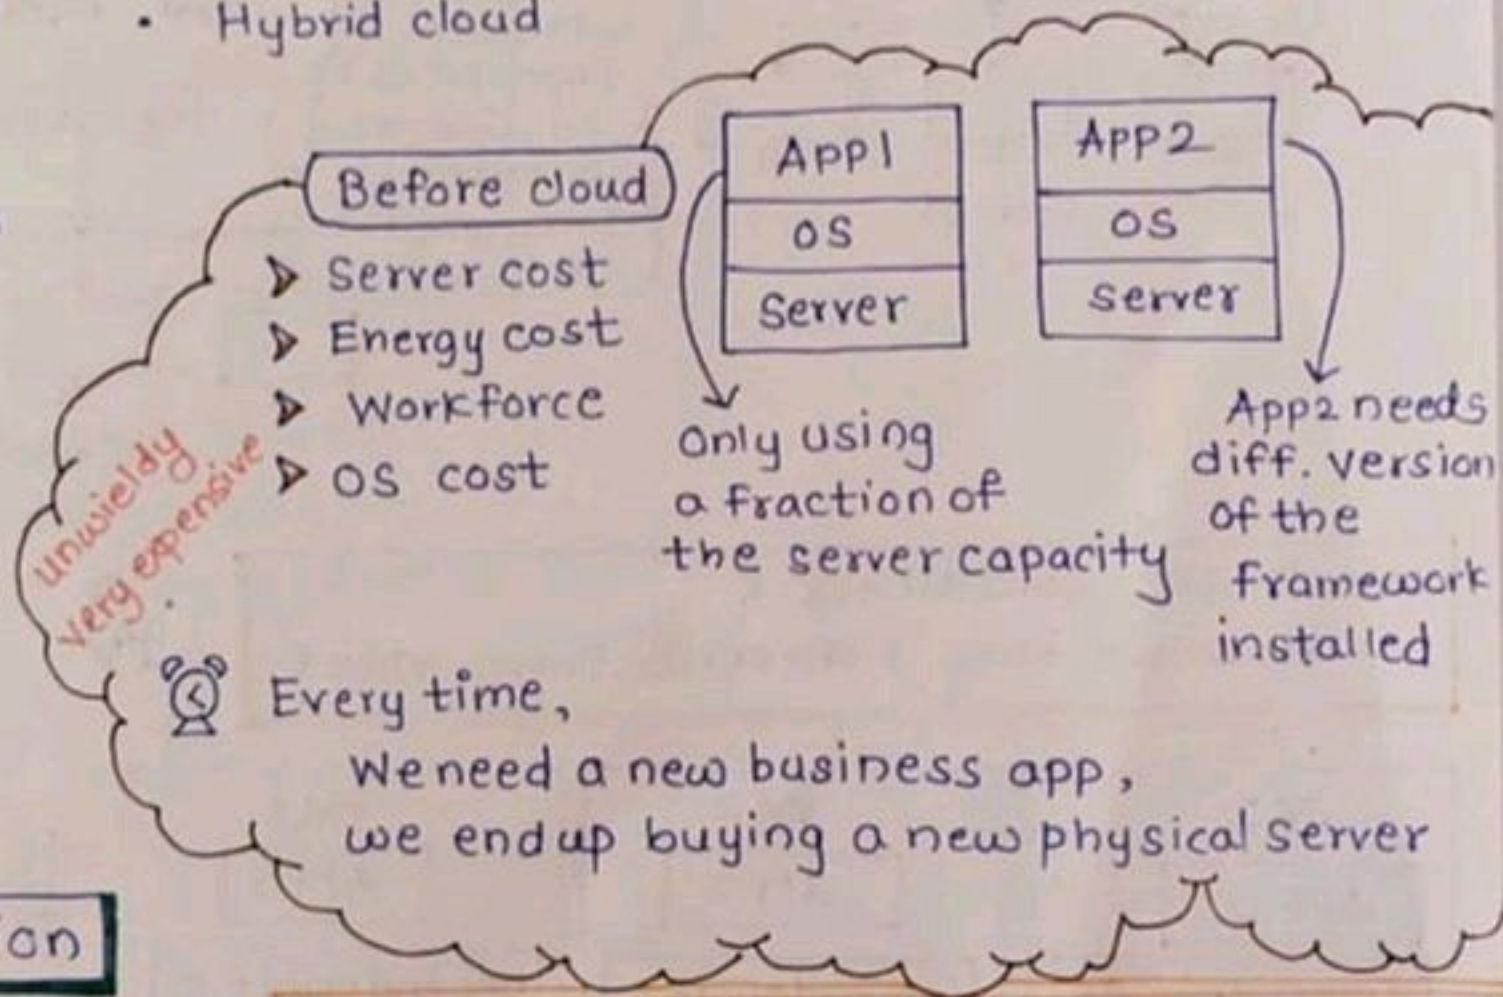 • Hybrid cloud
Before cloud
➤ Server cost
➤ Energy cost
➤ Workforce
➤ OS cost
unwieldy
very expensive
App1
OS
Server
App2
OS
server
Only using
a fraction of
the server capacity
App2 needs
diff. version
of the
framework
installed
Every time,
We need a new business app,
we end up buying a new physical server
on